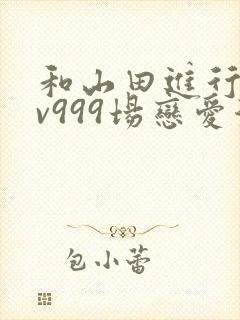 和山田進行
v999場戀愛
包小蕾